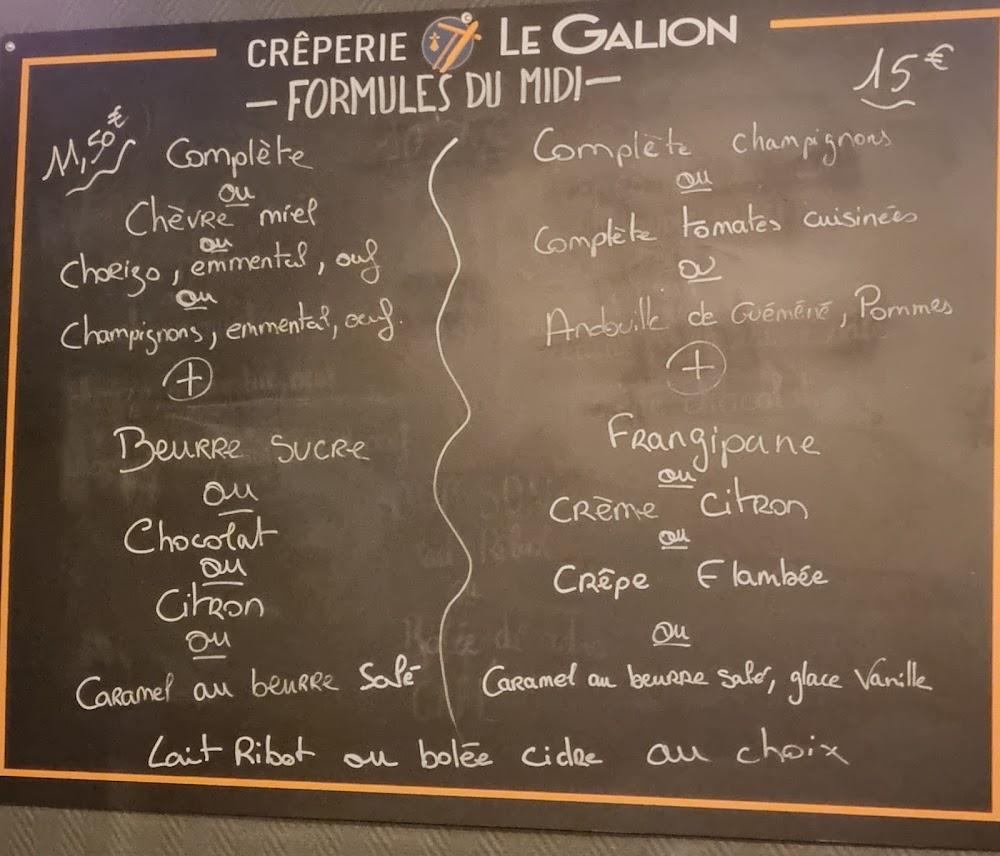 CRÊPERIE LE GALION
— FORMULES DU MIDI —
11,50€
Complète
ou
Chèvre miel
ou
Chorizo, emmental, oeuf
ou
Champignons, emmental, oeuf.
+
Beurre sucre
ou
Chocolat
ou
Citron
ou
Caramel au beurre salé
15€
Complète champignons
ou
Complète tomates cuisinées
ou
Andouille de Guémené, Pommes
+
Frangipane
ou
Crème citron
ou
Crêpe Flambée
ou
Caramel au beurre salé, glace Vanille
Lait Ribot ou bolée cidre au choix